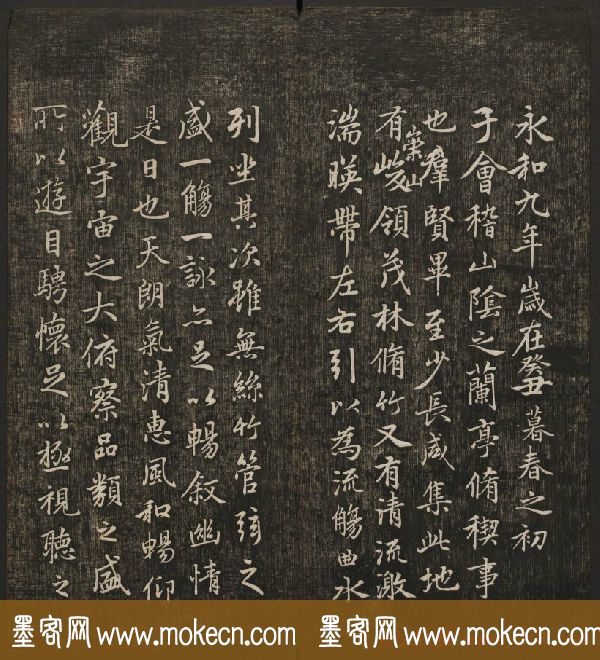 永和九年歲在癸丑暮春之初
于會稽山陰之蘭亭脩稧事
也羣賢畢至少長咸集此地
有崇山峻領茂林脩竹又有清流激
湍暎帶左右引以為流觴曲水
列坐其次雖無絲竹管弦之
盛一觴一詠亦足以暢叙幽情
是日也天朗氣清惠風和暢仰
觀宇宙之大俯察品類之盛
所以遊目騁懷足以極視聽之
墨客网 www.mokecn.com 墨客网 www.mokecn.com